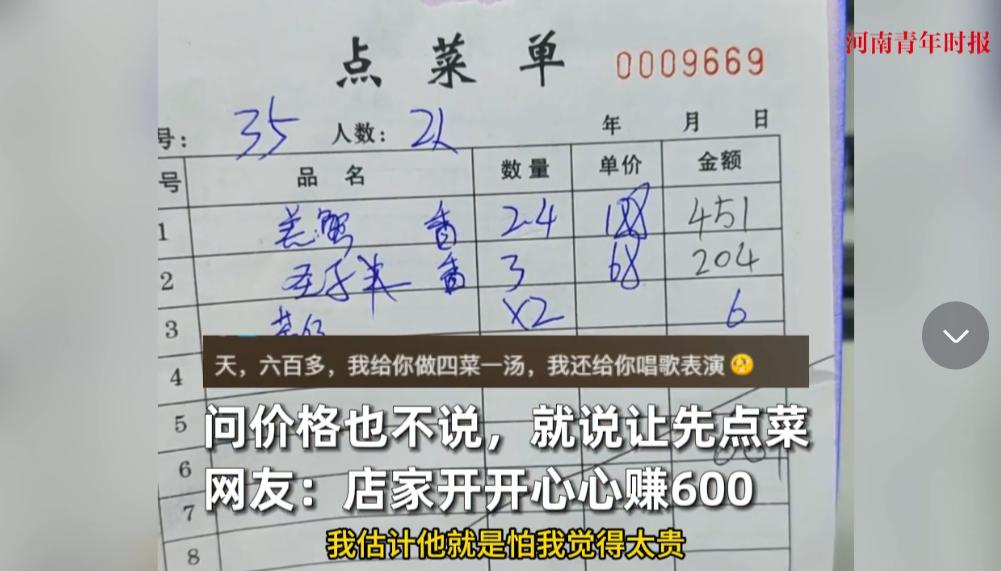 河南青年时报
点菜单 0009669
号： 35 人数： 2人 年 月 日
号 品名 数量 单价 金额
1 羔蟹 2.4 188 451
2 3 68 204
3 茶位 X2 6
4
天，六百多，我给你做四菜一汤，我还给你唱歌表演
5
问价格也不说，就说让先点菜
6
网友：店家开开心心赚600
7
我估计他就是怕我觉得太贵
8